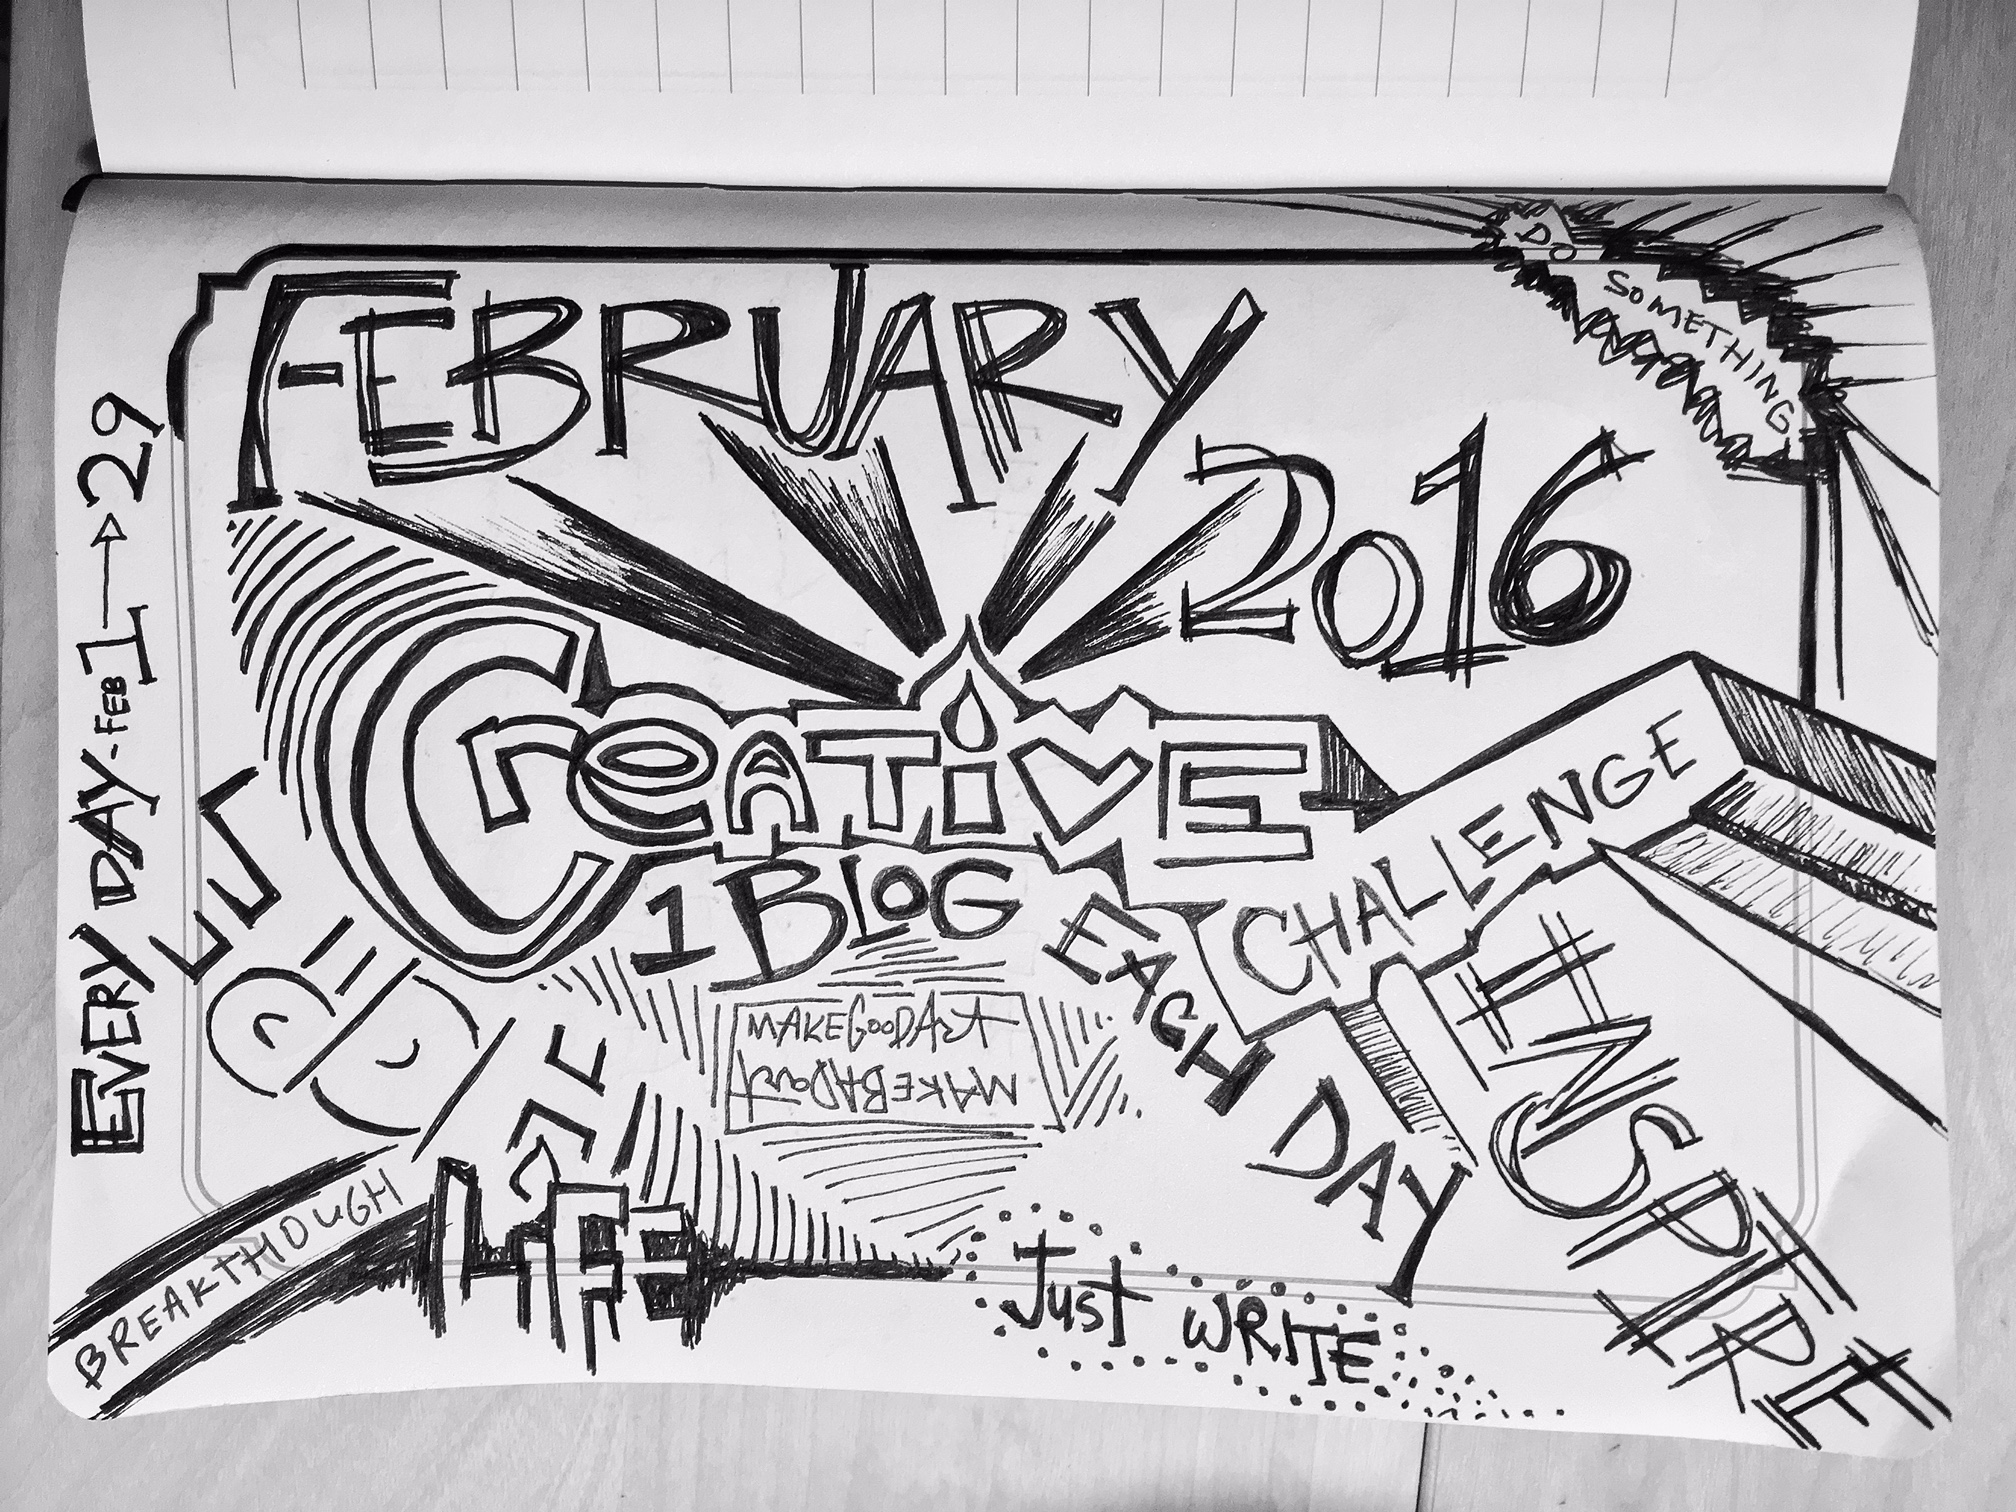 FEBRUARY
2016
DO SOMETHING
EVERY DAY - FEB 1 → 29
CREATiVE
CHALLENGE
1 BLOG
EACH DAY
MAKE GOOD ART
MAKE BAD art
INSPIRE
LIFE
BREAKTHOUGH
Just WRITE